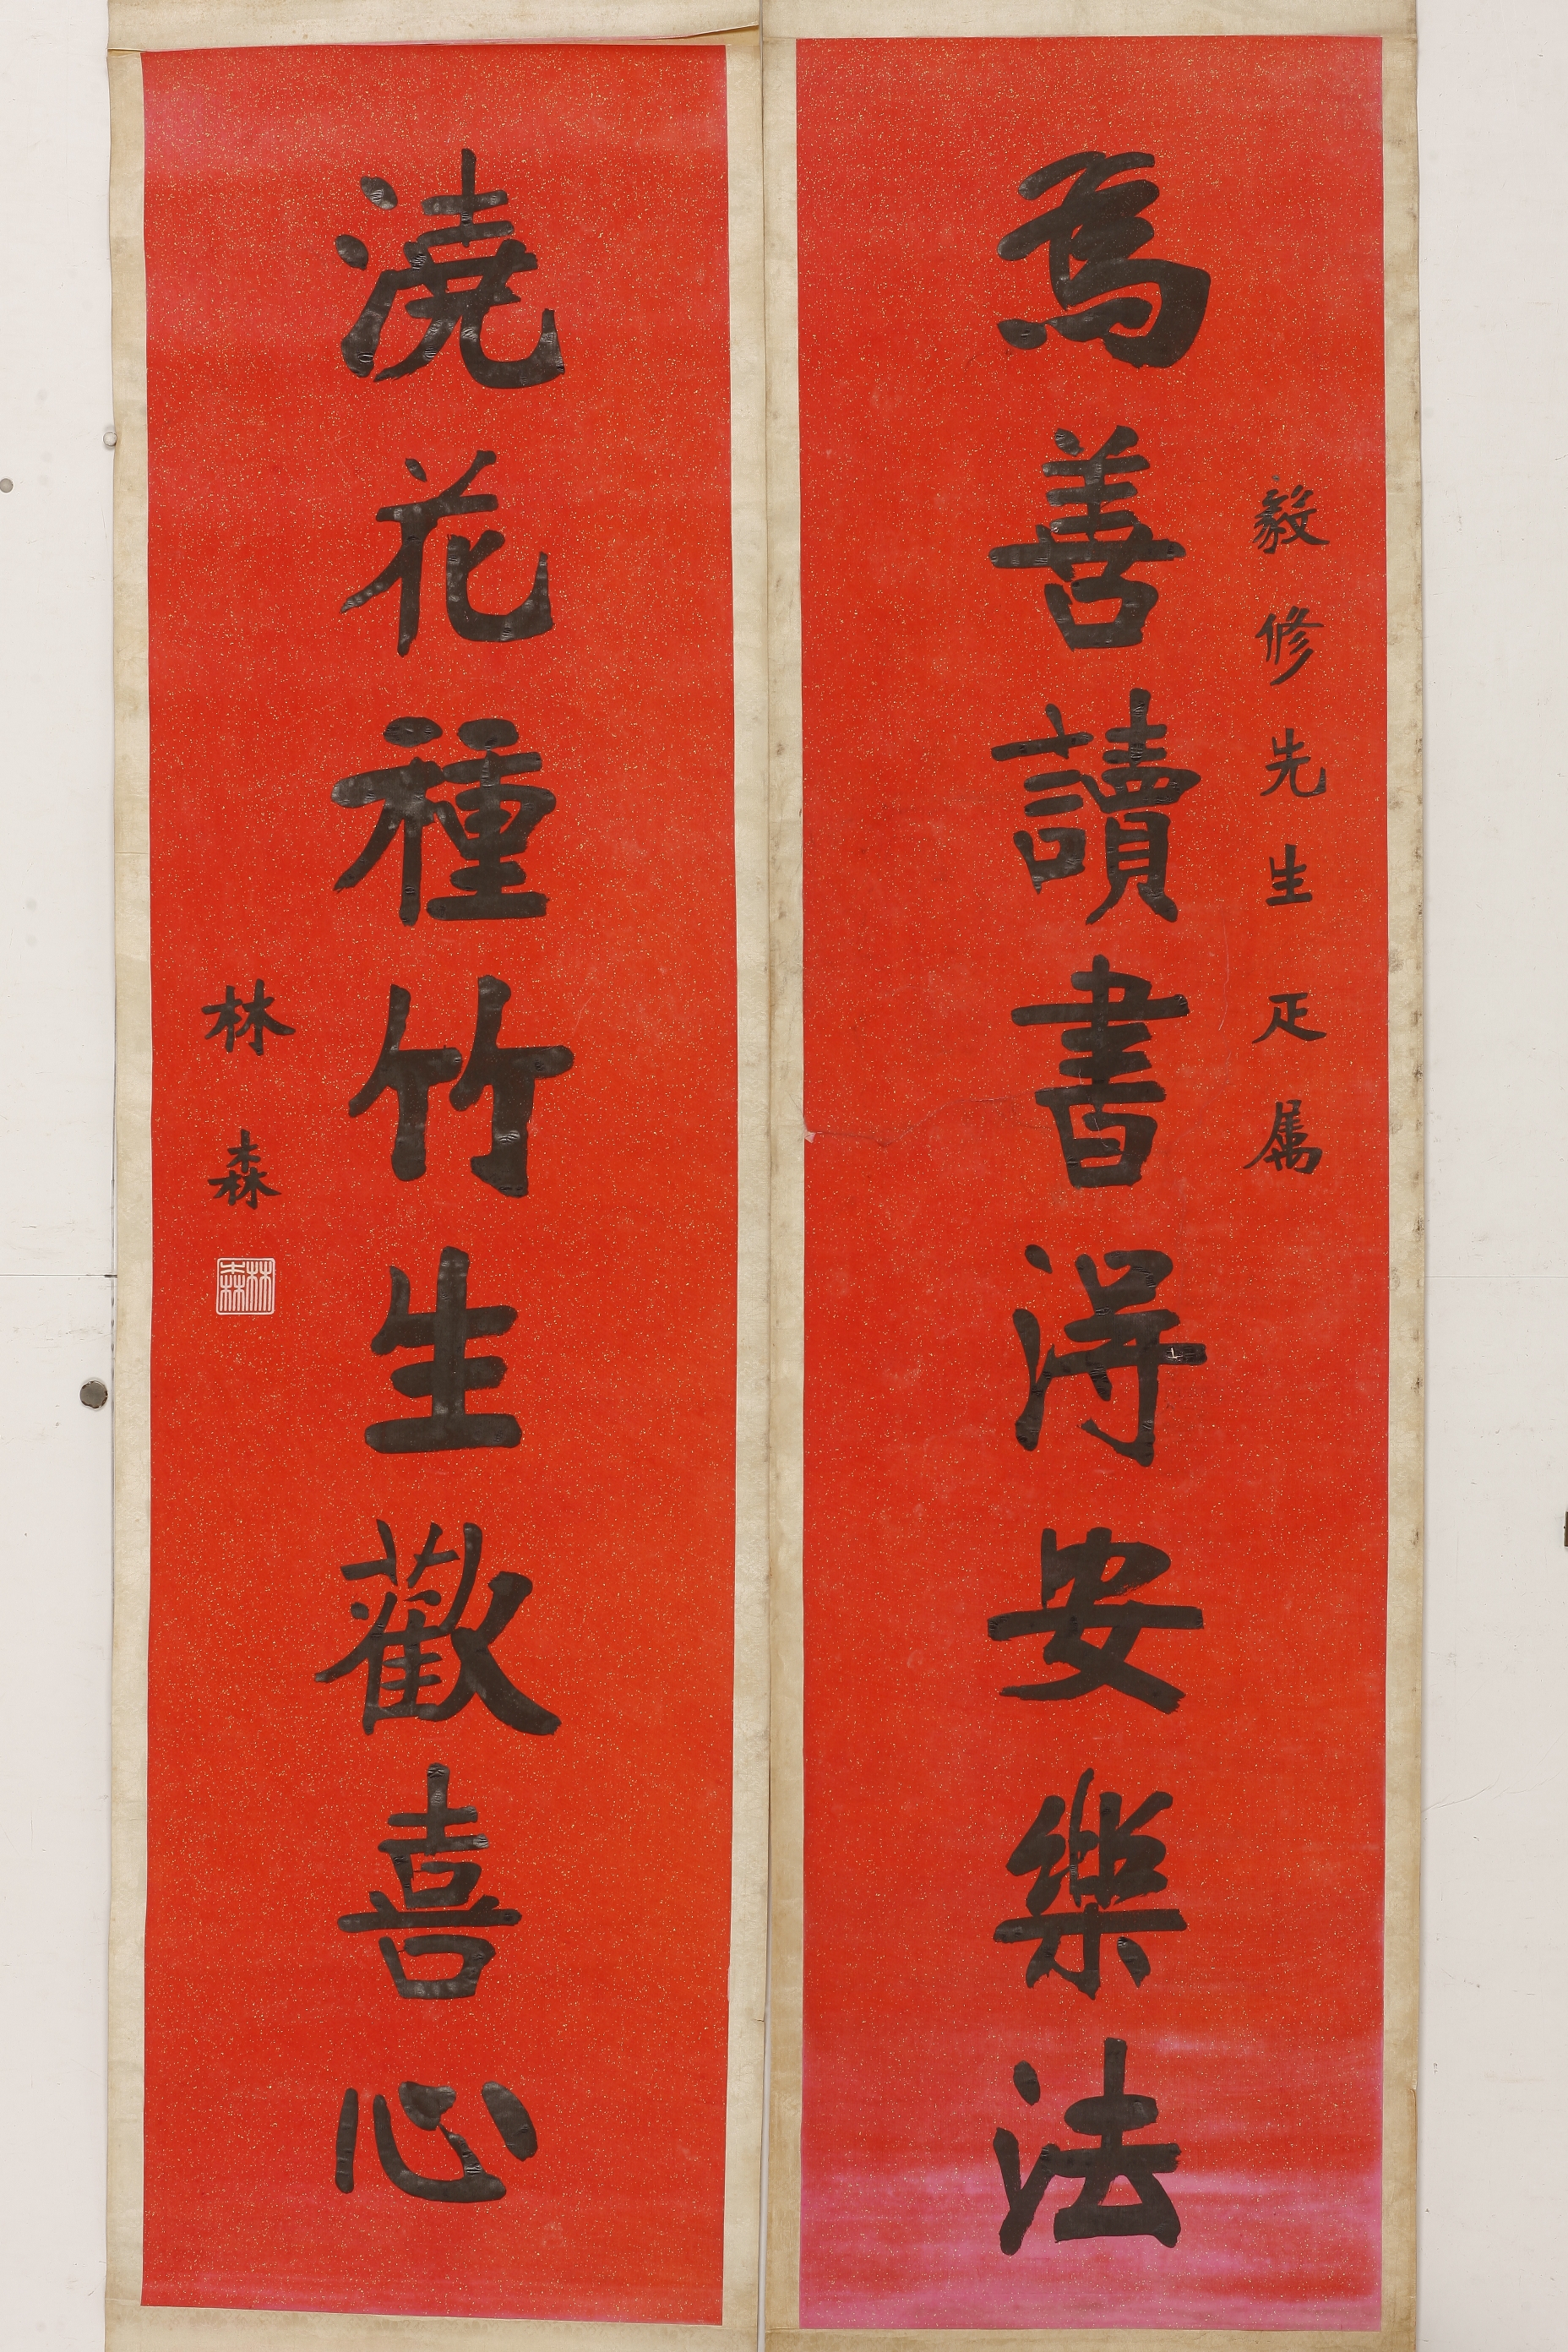 毅修先生疋属
為善讀書得安樂法
澆花種竹生歡喜心
林森
林森